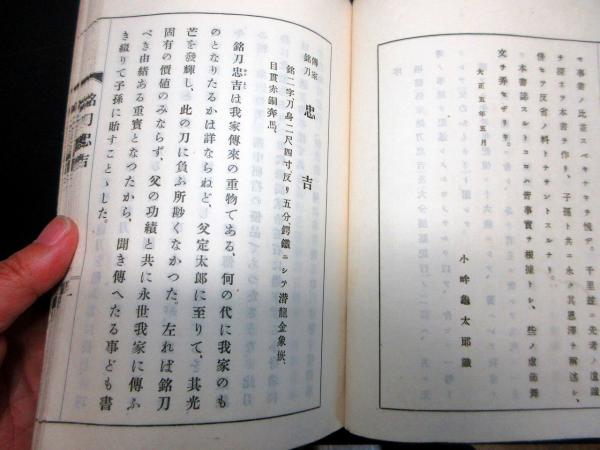 セ事業ノ比蓋スベキナキヲ愧ヂ、千里謹ミ先考ノ遺蹟
ヲ探ネテ本書ヲ作リ、子孫ト共ニ永ク其恩澤ヲ感謝シ、
併セテ反省ノ料トナサントスルナリ。
本書誌スルトコロハ皆事實ヲ根據トシ、些ノ虚飾舞
文ヲ弄セザリキ。
大正五年五月
小畔龜太郎識
傳家銘刀 忠吉
銘二字刀身二尺四寸反リ五分鍔鐵ニシテ潜龍金象嵌、
目貫赤銅奔馬、
銘刀忠吉は我家傳來の重物である、何の代に我家のも
のとなりたるかは詳ならねど、父定太郎に至りて、其光
芒を發輝し、此の刀に負ふ所尠くなかつた、左れば銘刀
固有の價値のみならず、父の功績と共に永世我家に傳ふ
べき由緒ある重寶となつたから、聞き傳へたる事ども書
き綴りて子孫に貽すことゝした。
銘刀忠吉